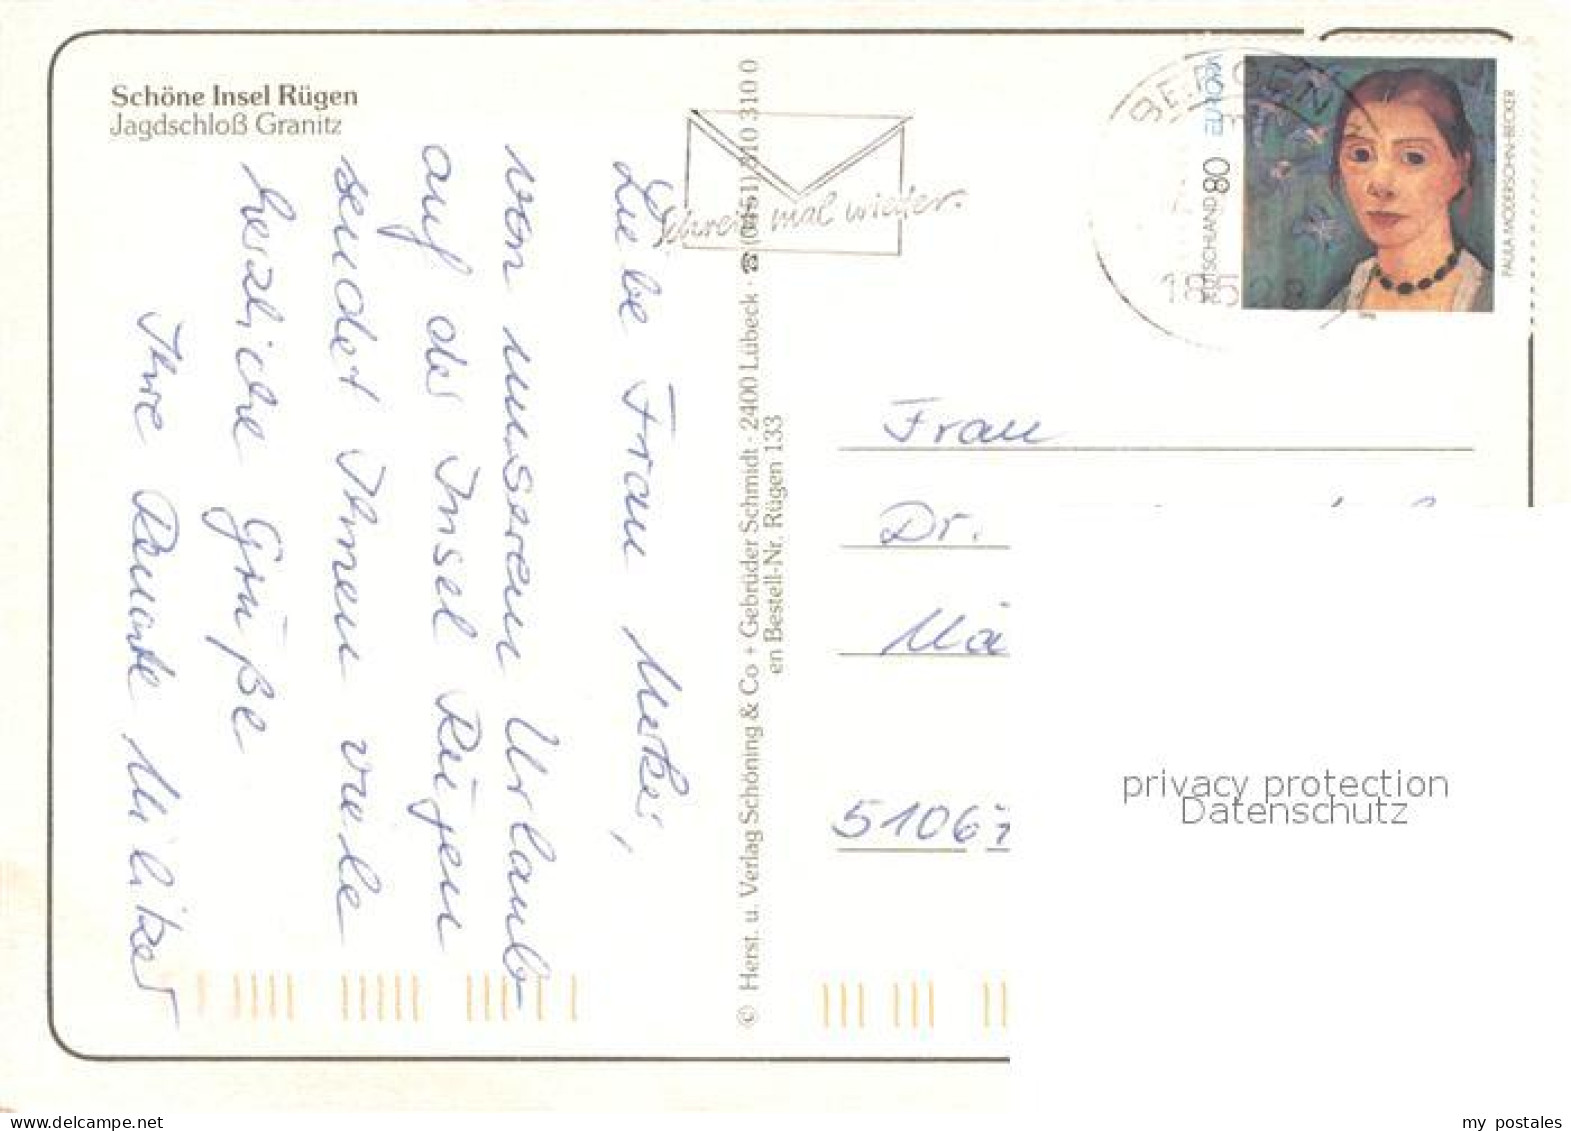 Schöne Insel Rügen
Jagdschloß Granitz
Liebe Frau
von unserem Urlaub
auf der Insel Rügen
sendet Ihnen viele
herzliche Grüße
Ihre Renate
© Herst. u. Verlag Schöning & Co + Gebrüder Schmidt · 2400 Lübeck · ☎ (0451) 310 310 0
en Bestell-Nr. Rügen 133
Schreib mal wieder.
BERGEN
EUROPA
DEUTSCHLAND 80
PAULA MODERSOHN-BECKER
Frau
Dr.
Mä
51067
privacy protection
Datenschutz
my postales